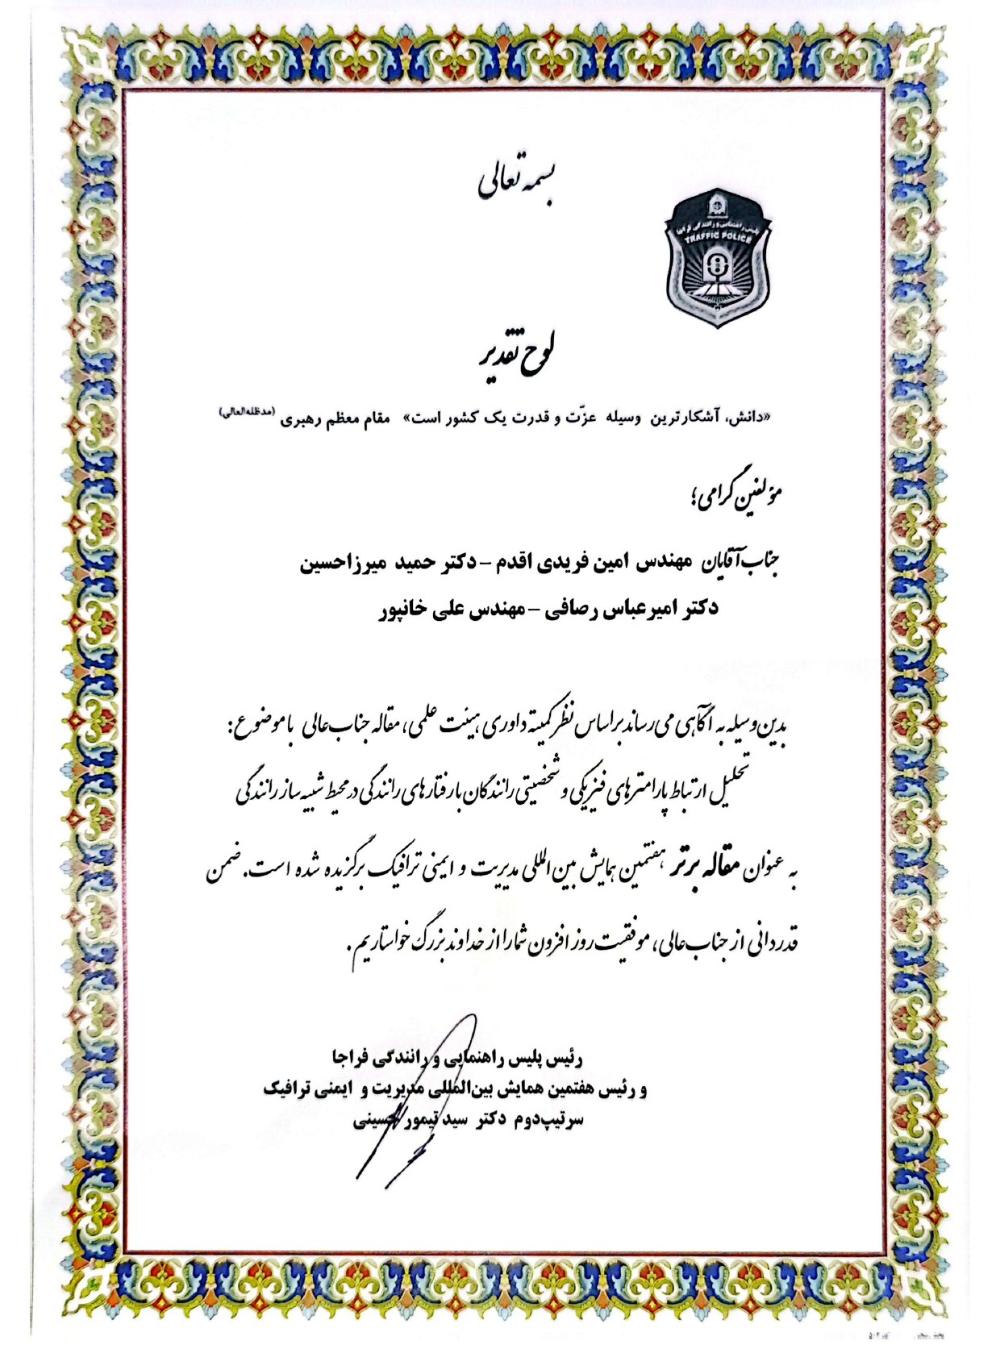 بسمه تعالی
پلیس راهنمایی و رانندگی فراجا
TRAFFIC POLICE
لوح تقدیر
«دانش، آشکارترین وسیله عزّت و قدرت یک کشور است» مقام معظم رهبری (مدظله‌العالی)
مؤلفین گرامی؛
جناب آقایان مهندس امین فریدی اقدم – دکتر حمید میرزاحسین
دکتر امیرعباس رصافی – مهندس علی خانپور
بدین‌وسیله به آگاهی می‌رساند براساس نظر کمیته داوری هیئت علمی، مقاله جناب‌عالی با موضوع:
تحلیل ارتباط پارامترهای فیزیکی و شخصیتی رانندگان با رفتارهای رانندگی در محیط شبیه ساز رانندگی
به عنوان مقاله برتر هفتمین همایش بین‌المللی مدیریت و ایمنی ترافیک برگزیده شده است. ضمن
قدردانی از جناب‌عالی، موفقیت روز افزون شما را از خداوند بزرگ خواستاریم.
رئیس پلیس راهنمایی و رانندگی فراجا
و رئیس هفتمین همایش بین‌المللی مدیریت و ایمنی ترافیک
سرتیپ‌دوم دکتر سید تیمور حسینی